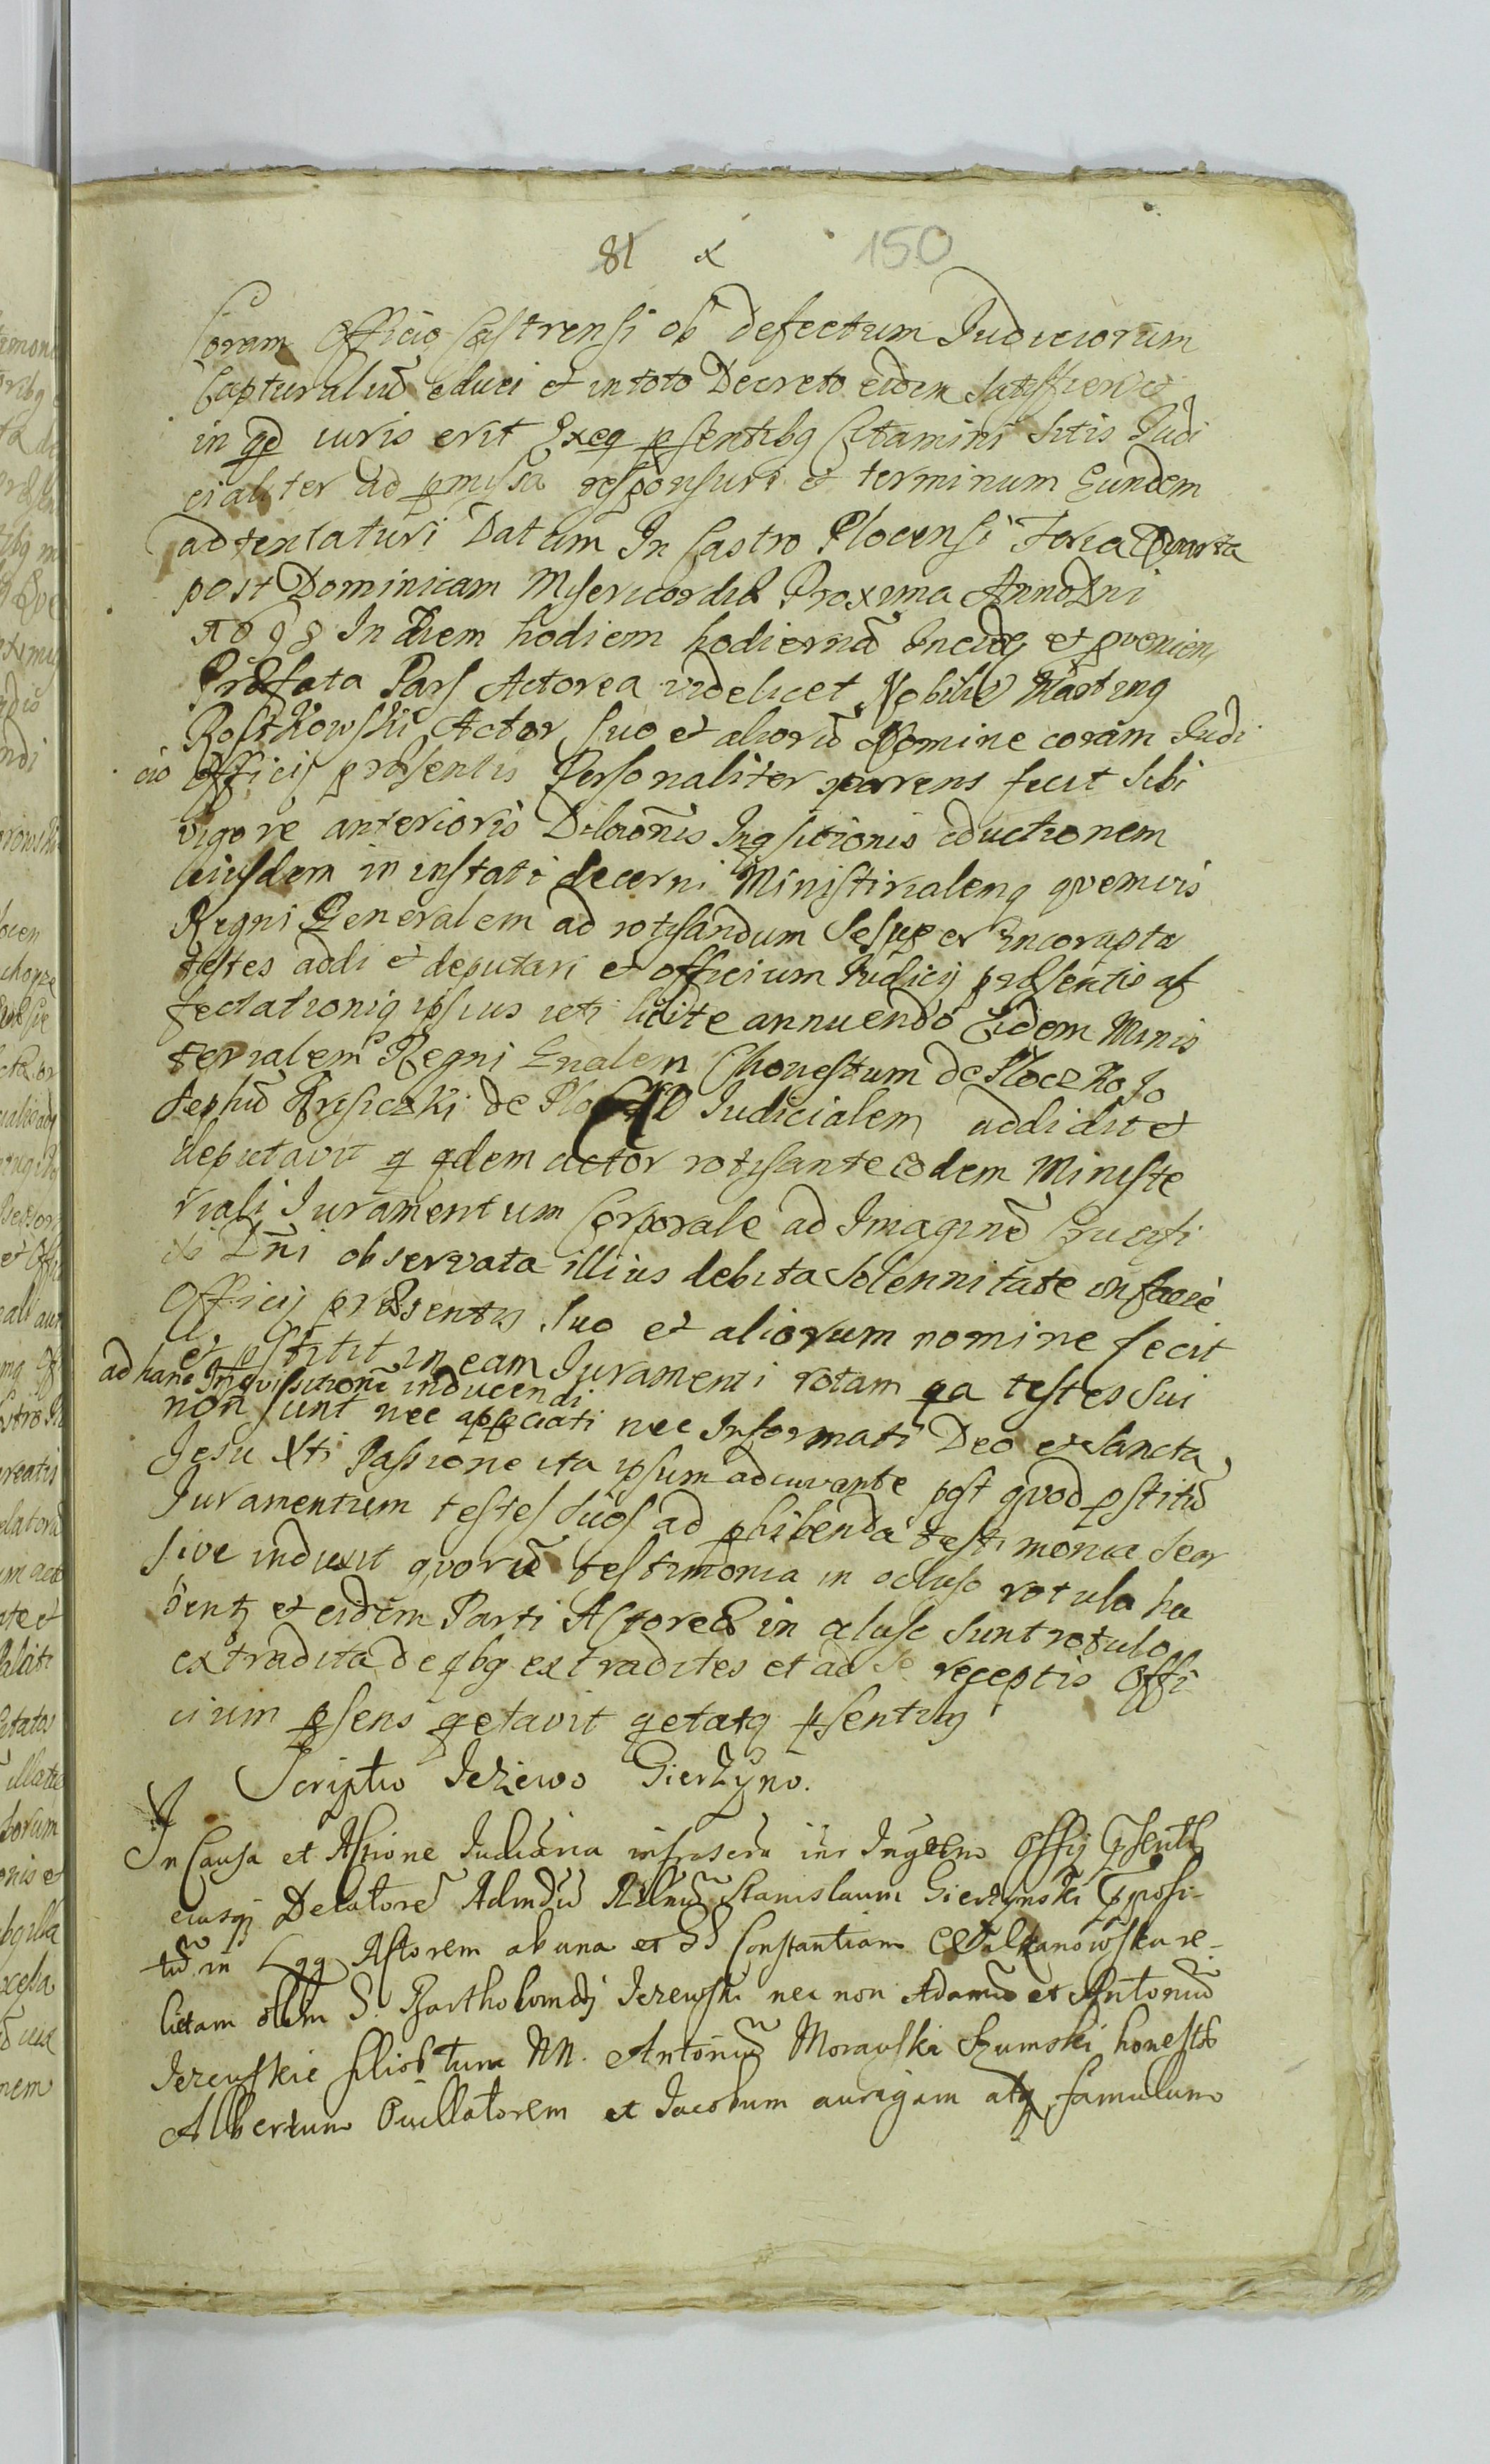 81 x 150
Coram Officio Castrensi ob defectum Iudiciorum
Capturaliũ educi et in toto Decreto eidem
in qd iuris erit Exeq psentibg Citamini sitis Iudi
cialiter ad pmissa responsuri et terminum Eundem
adtentaturi Datum In Castro Plocensi Feria Quarta
post Dominicam Misericordiæ Proxima Anno Dni
1698 In Diem hodiem hodiernã Incideñ et pvenien
Præfata Pars Actorea videlicet Nobilis Marting
Rostkowski Actor Suo et aliorũ Nomine coram Iudi
cio Officij præsentis Personaliter parens fecit sibi
vigore anterioris Dilaõnis Inqsitionis eductionem
eiusdem in instati decerni Ministirialeng qvemvis
Regni Generalem ad rotisandum Sesuper Incorupta
testes addi et deputari et officium Iudicij præsentis af
fectationiq ipsius uti licite annuendo Eidem Minis
terialem Regni Gnalem Chonestum de Płoczko Jo
sephũ de Judicialem addidit et
deputavit q qdem actor rotisante eodem Ministe
riali Juramentum Corporale ad Imaginẽ Crucifi
xi Dñi observata illius debita Solennitate in facie
Officij præsentis Suo et aliorum nomine fecit
et pstitit in eam Iuramenti rotam qa testes Sui
ad hanc Inqvisitionẽ inducendi
non sunt nec nec Informati Deo et Sancta
Jesu Xti Passione ita ipsum adiuvante post qvod pstitũ
Juramentum testes Suos ad phibenda testimonia Seor
sive induxit qvorũ testimonia in ocluso rotula ha
bentʒ et eidem Parti Actoreæ in cluse Sunt rotulo
extradita de qbg extradites et ad se receptis Offi
cium psens qetavit qetatq psentibg
Scriptũ Jeżewo Gierżyno.
In Causa et Actione Iudiciaria infrascra inr Insgtem Offij Psentis
eiusq Delatorẽ Admdũ Rdnũ Stanislaum Gierzynski Pposi-
tũ in Lgg Actorem ab una et GG Constantiam re-
lictam olim G. Bartholomæi Jezewski nec non Adamũ et Antoniũ
Jezewskie filios tum NN. Antoniũ Morawski Szumski honestos
Albertum Pucllatorem et Jacobum aurigam atq famulum